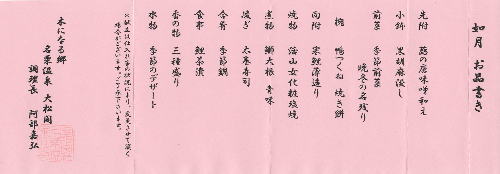 如月 お品書き
先附 蕗の唐味噌和え
小鉢 黒胡麻浸し
前菜 季節前菜
晩冬の名残り
椀 鴨つくね 焼き餅
向附 寒鯉薄造り
焼物 海山女化粧塩焼
煮物 鰤大根 青味
凌ぎ 太巻寿司
合肴 季節鍋
食事 鯉茶漬
香の物 三種盛り
水物 季節のデザート
※献立は仕入れ等の状況により、変更させて頂く
場合がございます。ご了承下さいませ。
木になる郷
名栗温泉 大松閣
調理長 阿部嘉弘